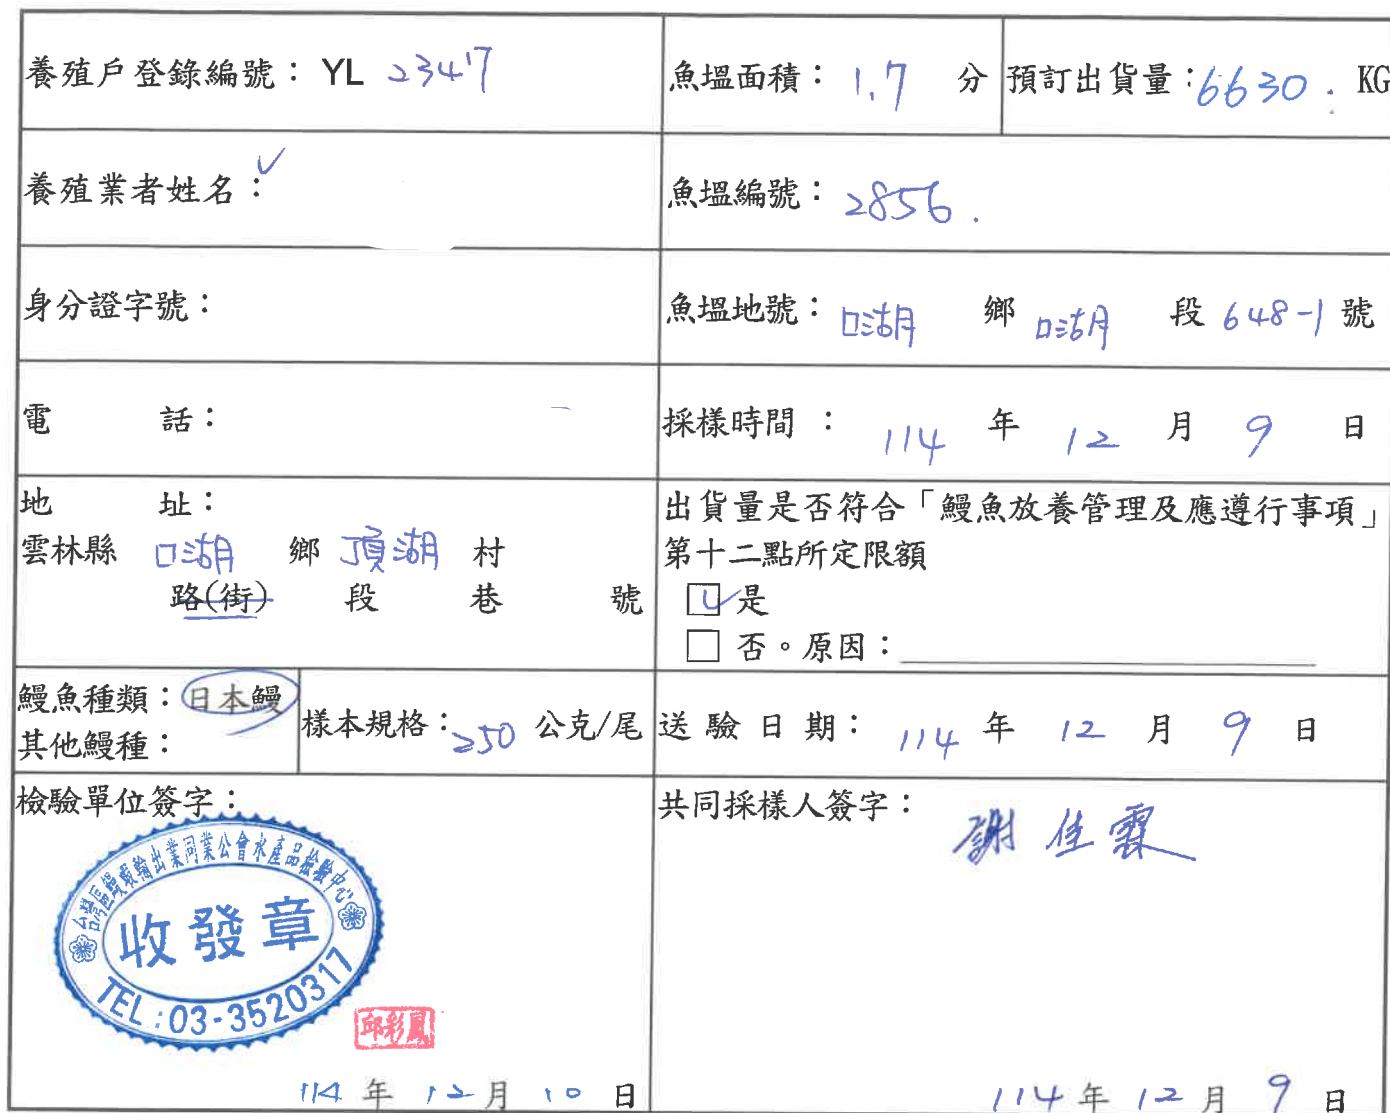 養殖戶登錄編號：YL 2347
魚塭面積：1.7 分
預訂出貨量：6630. KG
養殖業者姓名：
魚塭編號：2856.
身分證字號：
魚塭地號：口湖 鄉 口湖 段 648-1 號
電 話：
採樣時間：114 年 12 月 9 日
地 址：
雲林縣 口湖 鄉 頂湖 村
路(街) 段 巷 號
出貨量是否符合「鰻魚放養管理及應遵行事項」
第十二點所定限額
是
否。原因：
鰻魚種類：日本鰻
其他鰻種：
樣本規格：250 公克/尾
送驗日期：114 年 12 月 9 日
檢驗單位簽字：
台灣區鰻蝦輸出業同業公會水產品檢驗中心
收發章
TEL:03-3520317
邱彩鳳
114 年 12 月 10 日
共同採樣人簽字：
謝佳霖
114 年 12 月 9 日